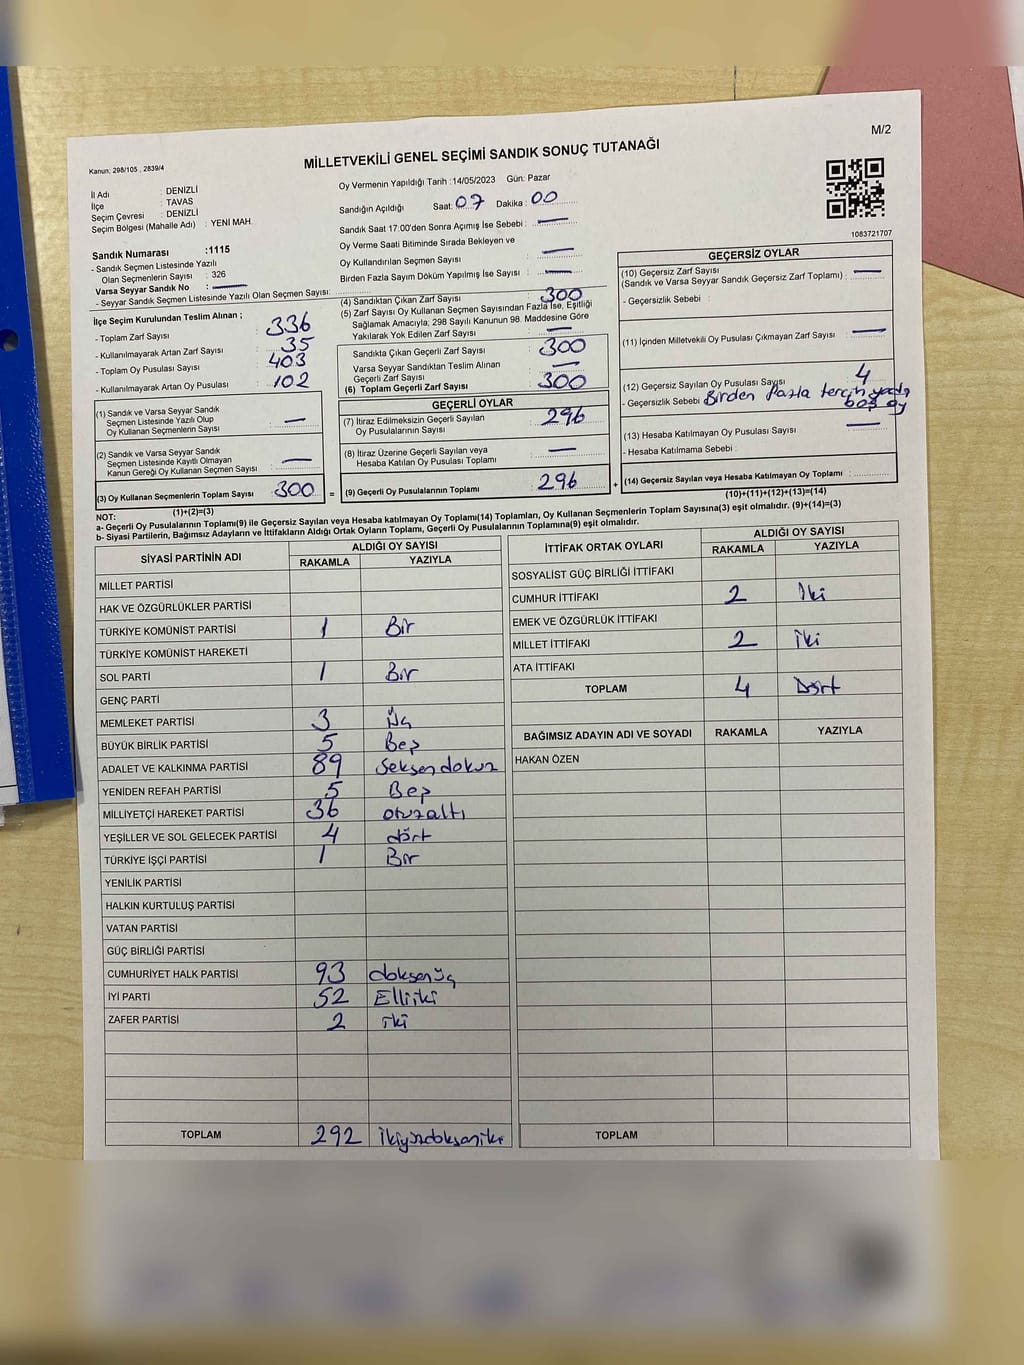 M/2
Kanun: 298/105 , 2839/4
MİLLETVEKİLİ GENEL SEÇİMİ SANDIK SONUÇ TUTANAĞI
İl Adı : DENİZLİ
İlçe : TAVAS
Seçim Çevresi : DENİZLİ
Seçim Bölgesi (Mahalle Adı) : YENİ MAH.
Sandık Numarası :1115
- Sandık Seçmen Listesinde Yazılı
Olan Seçmenlerin Sayısı : 326
Varsa Seyyar Sandık No : —
- Seyyar Sandık Seçmen Listesinde Yazılı Olan Seçmen Sayısı:
Oy Vermenin Yapıldığı Tarih :14/05/2023 Gün: Pazar
Sandığın Açıldığı Saat: 07 Dakika : 00
Sandık Saat 17:00'den Sonra Açımış İse Sebebi : —
Oy Verme Saati Bitiminde Sırada Bekleyen ve
Oy Kullandırılan Seçmen Sayısı : —
Birden Fazla Sayım Döküm Yapılmış İse Sayısı : —
1083721707
İlçe Seçim Kurulundan Teslim Alınan ;
- Toplam Zarf Sayısı : 336
- Kullanılmayarak Artan Zarf Sayısı : 35
- Toplam Oy Pusulası Sayısı : 403
- Kullanılmayarak Artan Oy Pusulası : 102
(1) Sandık ve Varsa Seyyar Sandık
Seçmen Listesinde Yazılı Olup
Oy Kullanan Seçmenlerin Sayısı : —
(2) Sandık ve Varsa Seyyar Sandık
Seçmen Listesinde Kayıtlı Olmayan
Kanun Gereği Oy Kullanan Seçmen Sayısı : —
(3) Oy Kullanan Seçmenlerin Toplam Sayısı : 300 =
(1)+(2)=(3)
(4) Sandıktan Çıkan Zarf Sayısı : 300
(5) Zarf Sayısı Oy Kullanan Seçmen Sayısından Fazla İse, Eşitliği
Sağlamak Amacıyla; 298 Sayılı Kanunun 98. Maddesine Göre
Yakılarak Yok Edilen Zarf Sayısı : —
Sandıkta Çıkan Geçerli Zarf Sayısı : 300
Varsa Seyyar Sandıktan Teslim Alınan
Geçerli Zarf Sayısı : —
(6) Toplam Geçerli Zarf Sayısı : 300
GEÇERLİ OYLAR
(7) İtiraz Edilmeksizin Geçerli Sayılan
Oy Pusulalarının Sayısı : 296
(8) İtiraz Üzerine Geçerli Sayılan veya
Hesaba Katılan Oy Pusulası Toplamı : —
(9) Geçerli Oy Pusulalarının Toplamı : 296 +
GEÇERSİZ OYLAR
(10) Geçersiz Zarf Sayısı
(Sandık ve Varsa Seyyar Sandık Geçersiz Zarf Toplamı) : —
- Geçersizlik Sebebi :
(11) İçinden Milletvekili Oy Pusulası Çıkmayan Zarf Sayısı : —
(12) Geçersiz Sayılan Oy Pusulası Sayısı : 4
- Geçersizlik Sebebi : Birden fazla tercih
boş oy
(13) Hesaba Katılmayan Oy Pusulası Sayısı : —
- Hesaba Katılmama Sebebi :
(14) Geçersiz Sayılan veya Hesaba Katılmayan Oy Toplamı :
(10)+(11)+(12)+(13)=(14)
NOT:
a- Geçerli Oy Pusulalarının Toplamı(9) ile Geçersiz Sayılan veya Hesaba katılmayan Oy Toplamı(14) Toplamları, Oy Kullanan Seçmenlerin Toplam Sayısına(3) eşit olmalıdır. (9)+(14)=(3)
b- Siyasi Partilerin, Bağımsız Adayların ve İttifakların Aldığı Ortak Oyların Toplamı, Geçerli Oy Pusulalarının Toplamına(9) eşit olmalıdır.
SİYASİ PARTİNİN ADI ALDIĞI OY SAYISI
RAKAMLA YAZIYLA
MİLLET PARTİSİ
HAK VE ÖZGÜRLÜKLER PARTİSİ
TÜRKİYE KOMÜNİST PARTİSİ 1 Bir
TÜRKİYE KOMÜNİST HAREKETİ
SOL PARTİ 1 Bir
GENÇ PARTİ
MEMLEKET PARTİSİ 3 Üç
BÜYÜK BİRLİK PARTİSİ 5 Beş
ADALET VE KALKINMA PARTİSİ 89 Seksendokuz
YENİDEN REFAH PARTİSİ 5 Beş
MİLLİYETÇİ HAREKET PARTİSİ 36 otuzaltı
YEŞİLLER VE SOL GELECEK PARTİSİ 4 dört
TÜRKİYE İŞÇİ PARTİSİ 1 Bir
YENİLİK PARTİSİ
HALKIN KURTULUŞ PARTİSİ
VATAN PARTİSİ
GÜÇ BİRLİĞİ PARTİSİ
CUMHURİYET HALK PARTİSİ 93 doksanüç
İYİ PARTİ 52 Elliiki
ZAFER PARTİSİ 2 iki
TOPLAM 292 ikiyüzdoksaniki
İTTİFAK ORTAK OYLARI ALDIĞI OY SAYISI
RAKAMLA YAZIYLA
SOSYALİST GÜÇ BİRLİĞİ İTTİFAKI
CUMHUR İTTİFAKI 2 İki
EMEK VE ÖZGÜRLÜK İTTİFAKI
MİLLET İTTİFAKI 2 iki
ATA İTTİFAKI
TOPLAM 4 Dört
BAĞIMSIZ ADAYIN ADI VE SOYADI RAKAMLA YAZIYLA
HAKAN ÖZEN
TOPLAM